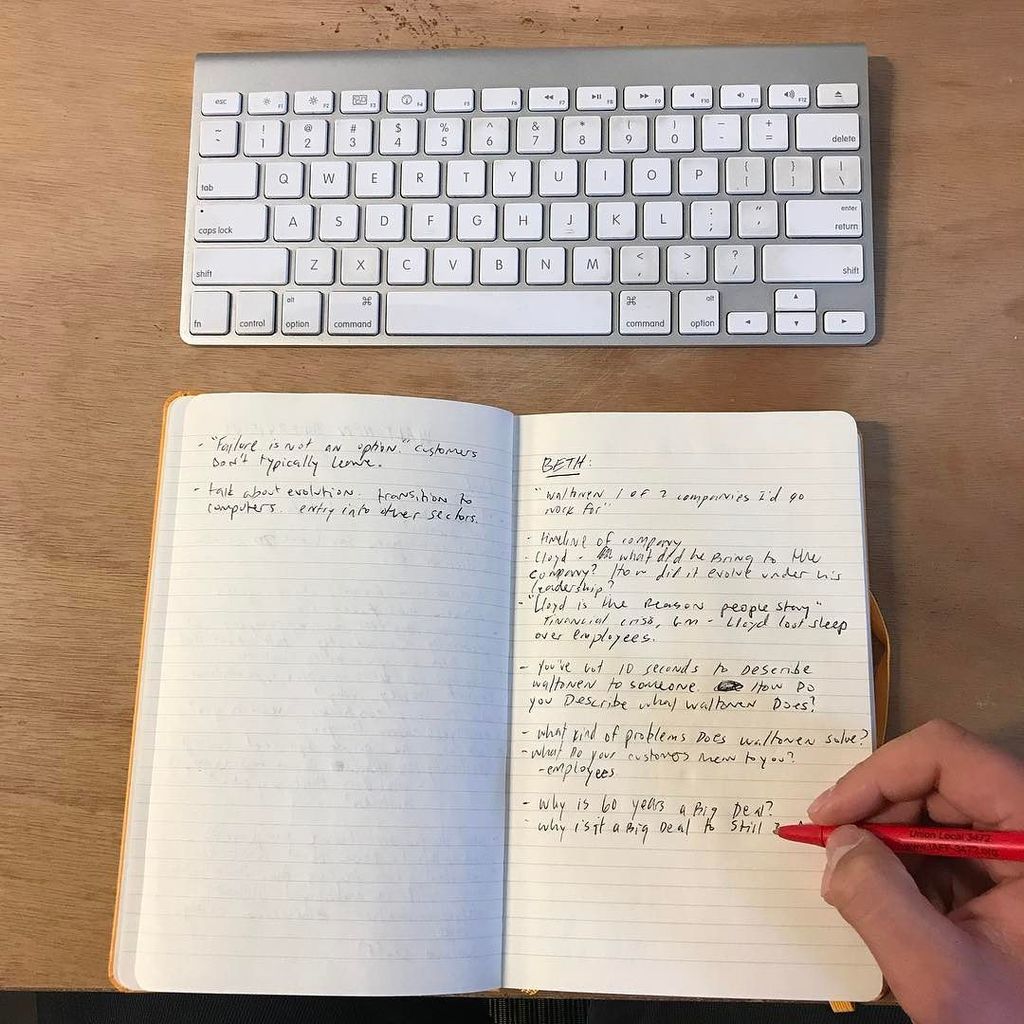 esc F1 F2 F3 F4 F5 F6 F7 F8 F9 F10 F11 F12
~ ` ! 1 @ 2 # 3 $ 4 % 5 ^ 6 & 7 * 8 ( 9 ) 0 - + = delete
tab Q W E R T Y U I O P { [ } ] | \
caps lock A S D F G H J K L : ; " ' enter return
shift Z X C V B N M < , > . ? / shift
fn control alt option ⌘ command ⌘ command alt option
- "Failure is not an option." customers
Don't typically leave.
- talk about evolution. transition to
computers. entry into other sectors.
BETH:
"Waltonen 1 of 2 companies I'd go
work for"
- timeline of company
- Lloyd - what did he Bring to the
company? How did it evolve under his
leadership?
- "Lloyd is the Reason people stay"
Financial crisis, GM - Lloyd lost sleep
over employees.
- You've got 10 seconds to Describe
waltonen to someone. How Do
you Describe what waltonen Does?
- what kind of problems Does waltonen solve?
- what Do your customers mean to you?
- employees
- why is 60 years a Big Deal?
- why is it a Big Deal to still
Union Local 3472